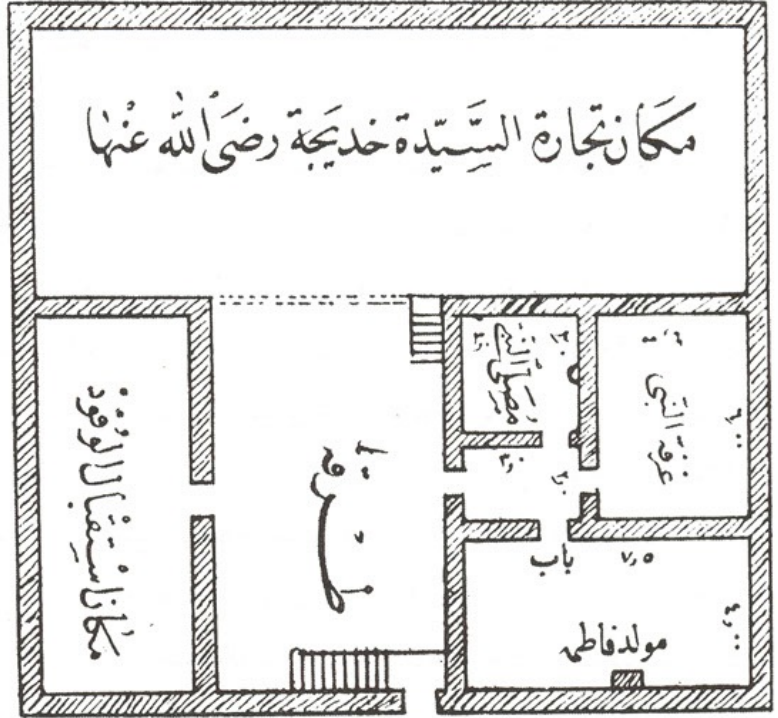 مكان تجارة السيدة خديجة رضي الله عنها
مكان استقبال الوفود
طرقة
مصلى النبي
غرفة النبي
باب
٧٫٥
مولد فاطمة